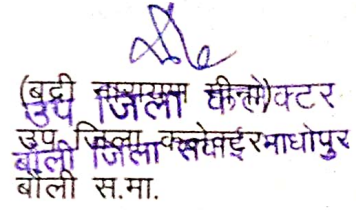 (बद्री नारायण मीना)
उप जिला कलेक्टर
उप जिला कलेक्टर
बौंली जिला सवाईमाधोपुर
बौंली स.मा.